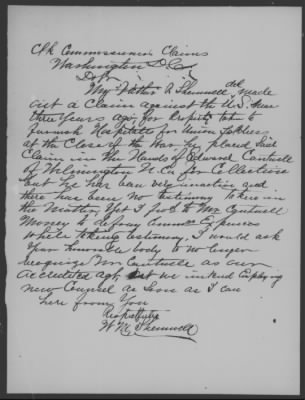 Clk Commissioners Claims
Washington D.C.
Dr Sir
My Father A Shemwell decd made
out a Claim against the U.S. near
three years ago, for Property taken to
furnish Hospitals for Union Soldiers
at the Close of the War, he placed Said
Claim in the Hands of Edward Cantwell
of Wilmington N.C. for Collection
but he has been very inactive and
there has been no testimony taken in
the Matter, yet I Mr Cantwell
Money to defray Commr Expenses
while taking testimony, I would ask
your honorable body to no longer
recognize Mr Cantwell as our
accredited agt. we intend Employing
new Counsel as Soon as I can
hear from You
Respectfully
W M Shemwell